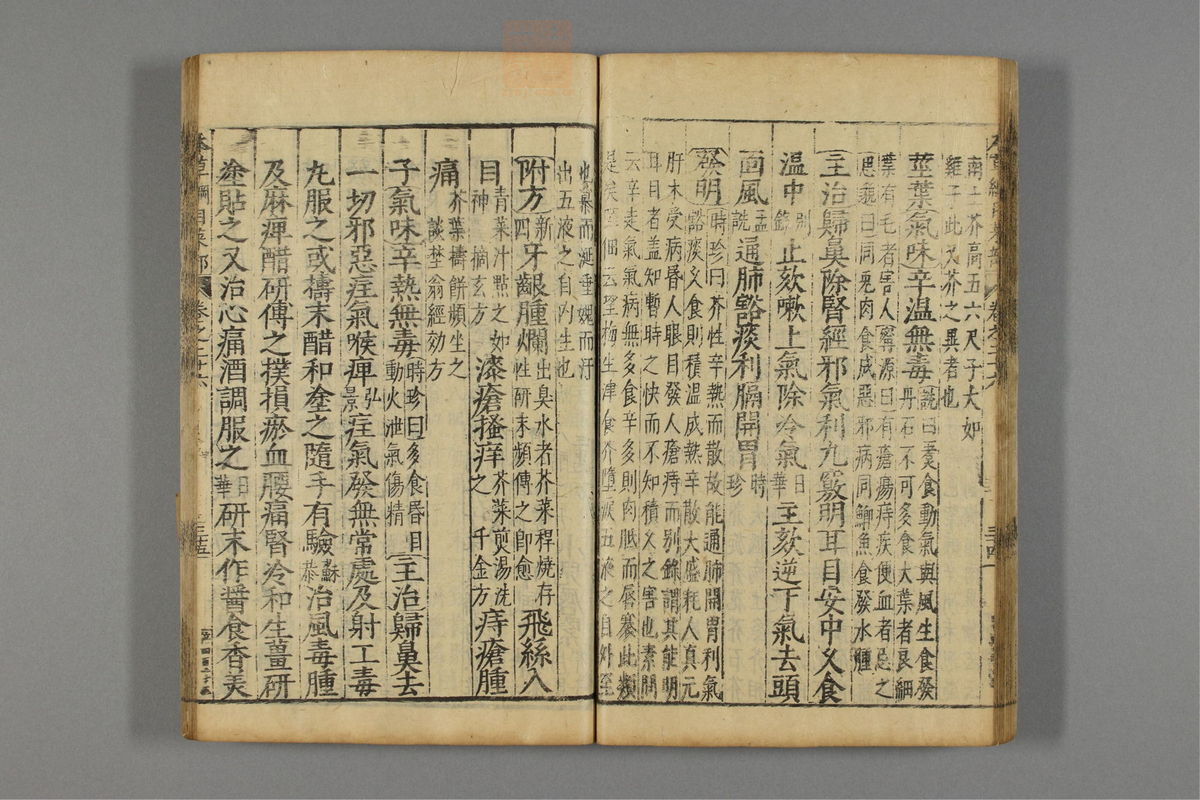 南土芥高五六尺子大如
雞子此又芥之異者也
莖葉氣味辛温無毒詵曰煑食動氣與風生食發
丹石不可多食大葉者良細
葉有毛者害人寗源曰有瘡瘍痔疾便血者忌之
思邈曰同兎肉食成惡邪病同鯽魚食發水腫
主治歸鼻除腎經邪氣利九竅明耳目安中久食
温中别錄止欬嗽上氣除冷氣日華主欬逆下氣去頭
面風孟詵通肺豁痰利膈開胃時珍
發明時珍曰芥性辛熱而散故能通肺開胃利氣
豁痰久食則積温成熱辛散大盛耗人真元
肝木受病昏人眼目發人瘡痔而别錄謂其能明
耳目者盖知暫時之快而不知積久之害也素問
云辛走氣氣病無多食辛多則肉胝而唇褰此類
是矣陸佃云望梅生津食芥墮淚五液之自外至
也慕而涎垂媿而汗
出五液之自内生也
附方新四牙齦腫爛出臭水者芥菜桿燒存
性研末頻傳之即愈飛絲入
目青菜汁點之如
神摘玄方漆瘡搔痒芥菜煎湯洗
之千金方痔瘡腫
痛芥葉擣餅頻坐之
談埜翁經効方
子氣味辛熱無毒時珍曰多食昏目
動火泄氣傷精主治歸鼻去
一切邪惡疰氣喉痺弘景疰氣發無常處及射工毒
丸服之或擣末醋和塗之隨手有驗蘇恭治風毒腫
及麻痺醋研傳之撲損瘀血腰痛腎冷和生薑研
塗貼之又治心痛酒調服之日華研末作醬食香美
本草綱目菜部
卷之二十六